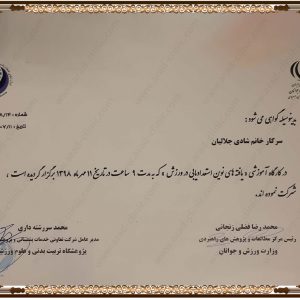 بدینوسیله گواهی می شود :
سرکار خانم شادی جلالیان
در کارگاه آموزشی « یافته های نوین استعدادیابی در ورزش » که به مدت ۹ ساعت در تاریخ ۱۱ مهرماه ۱۳۹۸ برگزار گردیده است ،
شرکت نموده اند.
محمد رضا فضلی زنجانی
رئیس مرکز مطالعات و پژوهش های راهبردی
وزارت ورزش و جوانان
محمد سررشته داری
مدیر عامل شرکت تعاونی خدمات
پژوهشگاه تربیت بدنی و علوم ورزشی